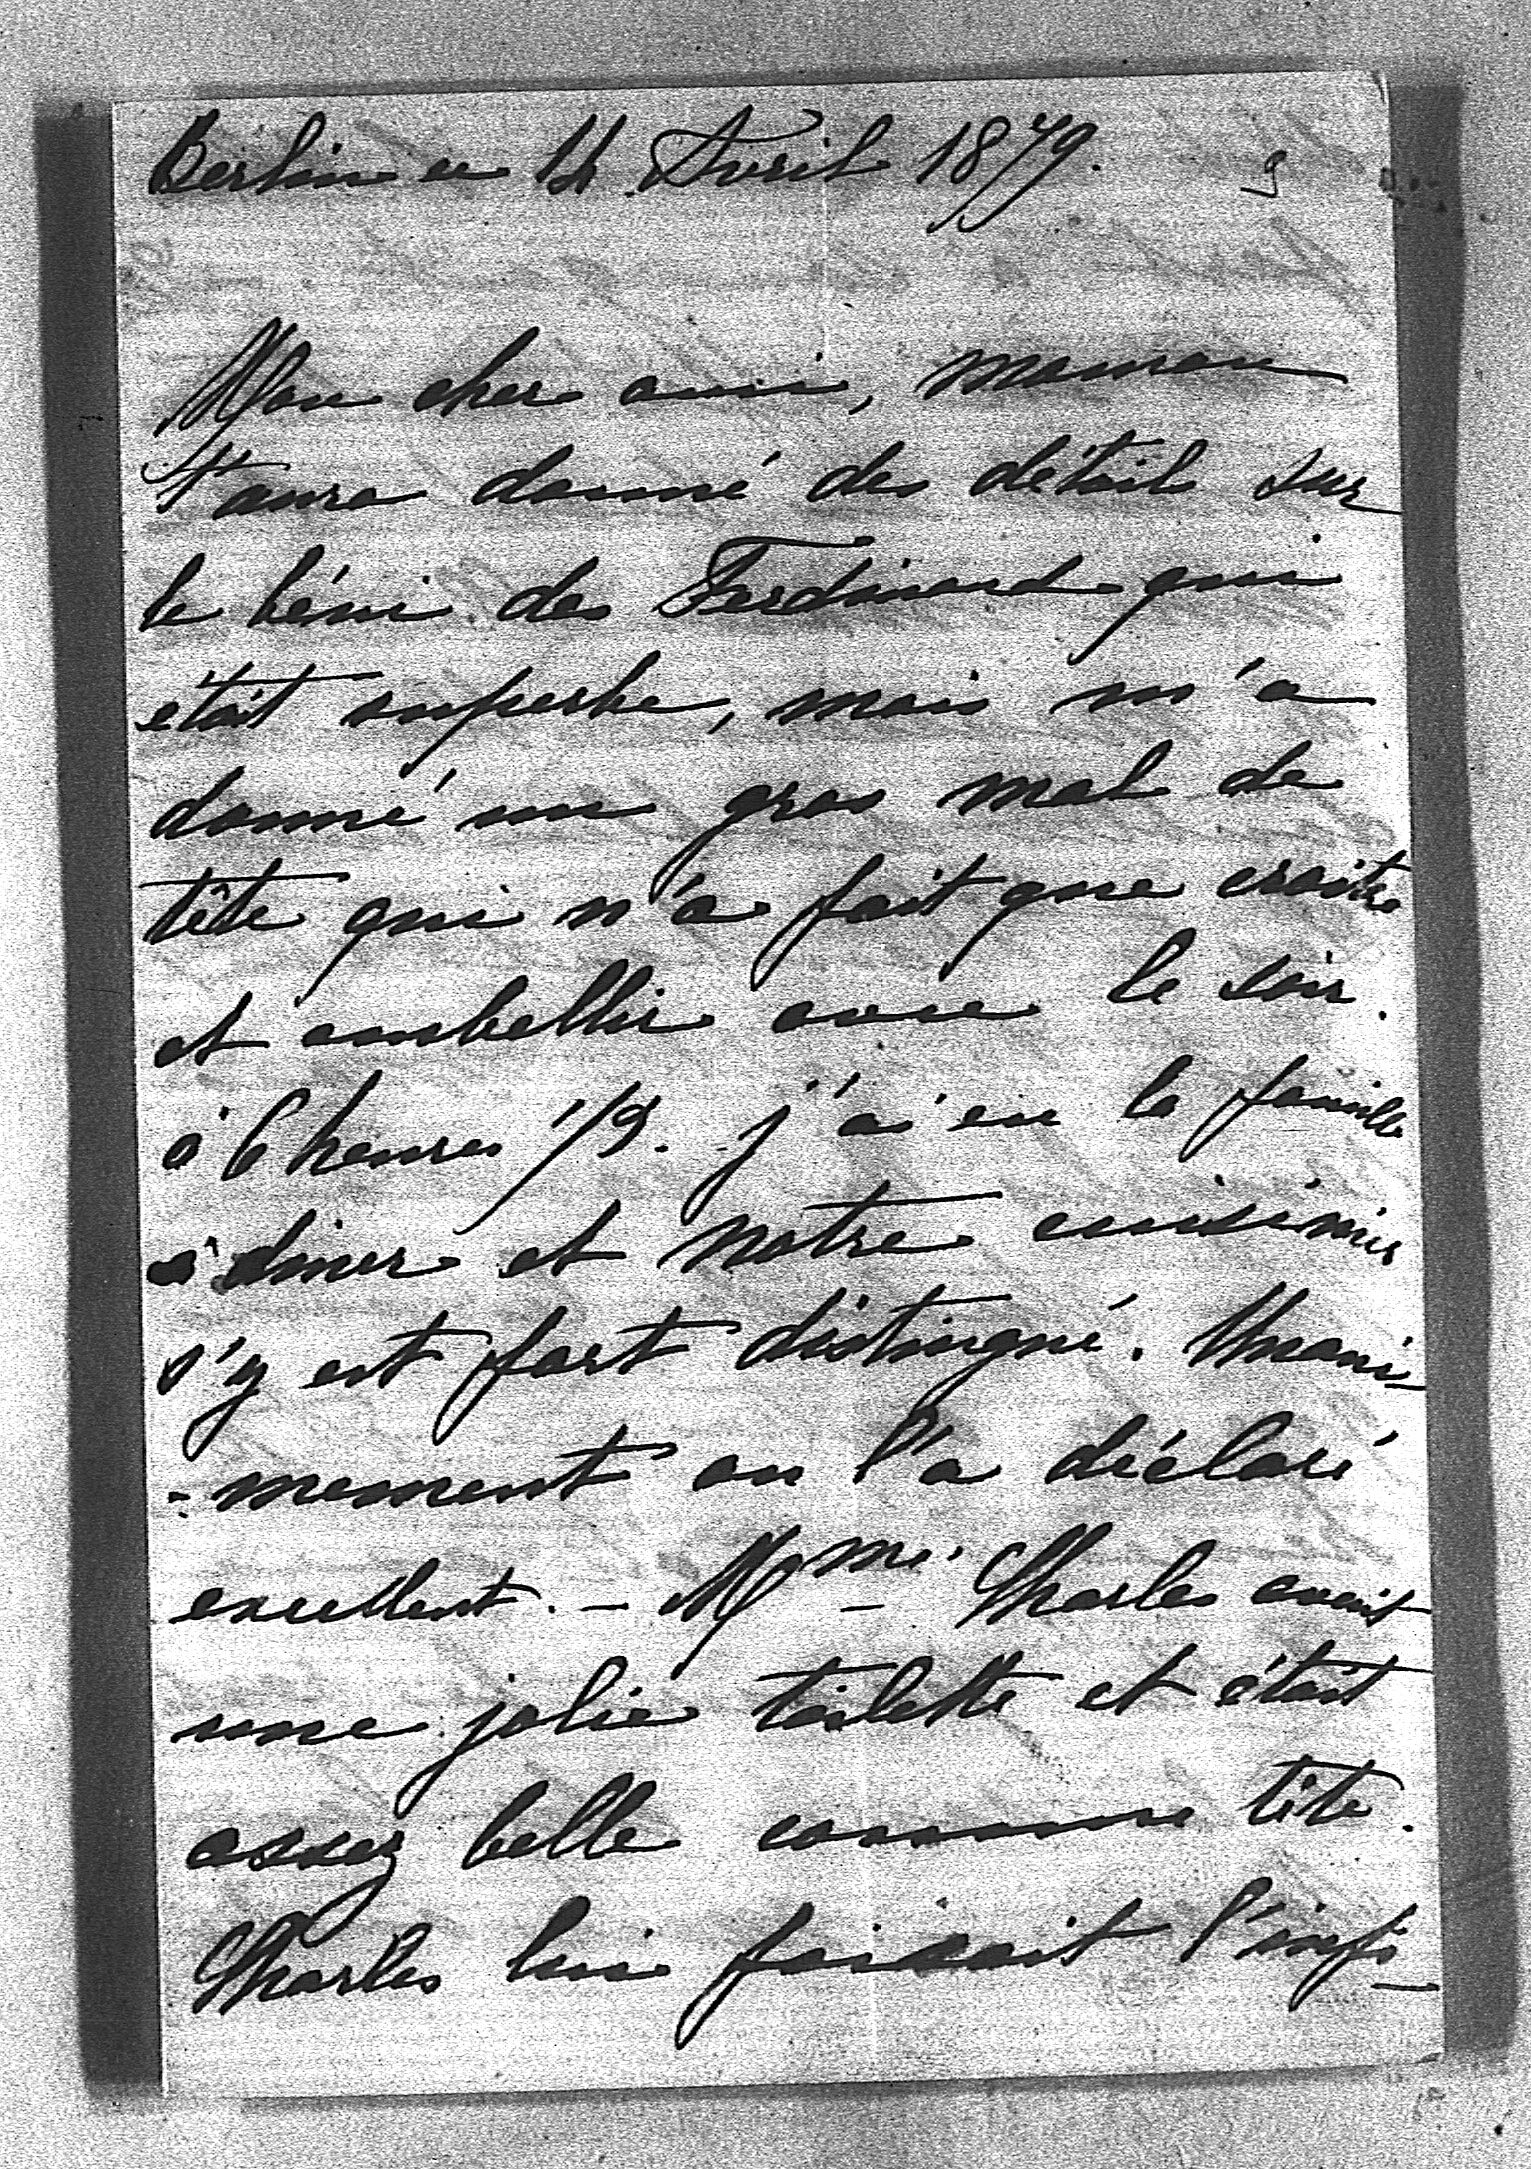 Berlin ce 14 Avril 1879. 9
Mon cher ami, maman
t'aura donné des détails sur
le béni des Ferdinand qui
était superbe, mais m'a
donné un gros mal de
tête qui n'a fait que croitre
et embellir avec le soir.
à 6 heures 1/2. j'ai eu la famille
à diner et notre cuisinier
s'y est fort distingué. Unani-
-mement on l'a déclaré
excellent. - Mme. Charles avait
une jolie toilette et était
assez belle comme tête.
Charles lui faisait l'infi-